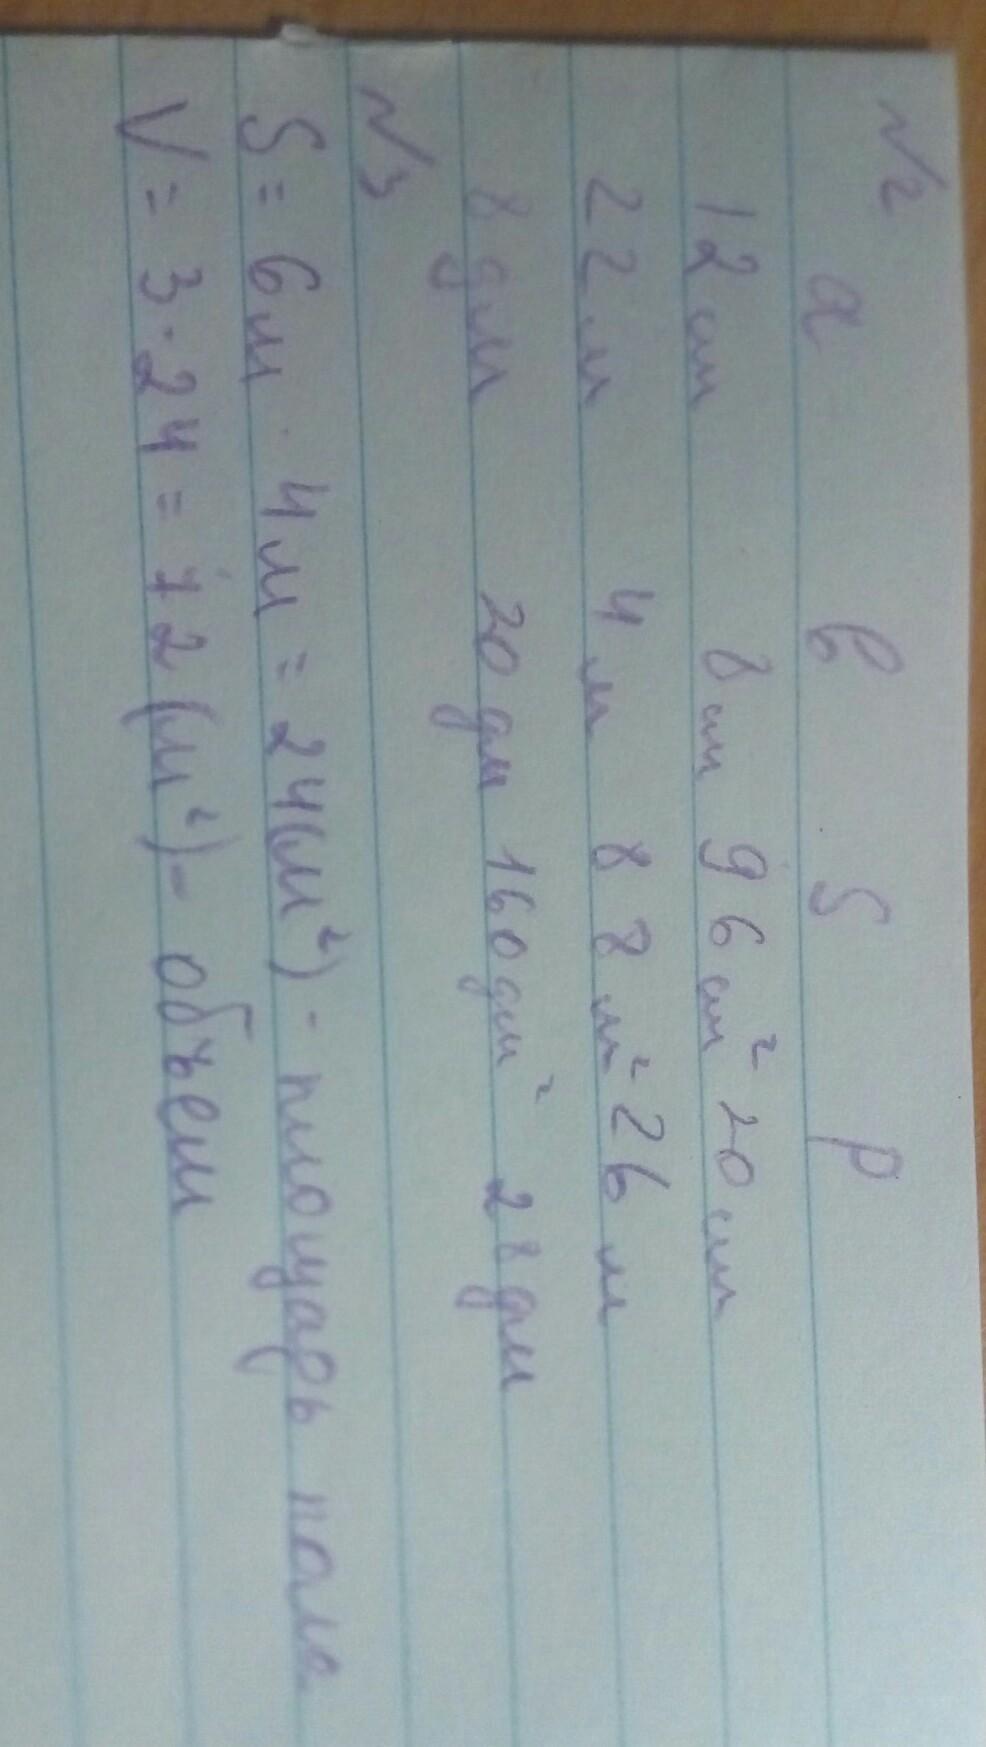 №2
a в S P
12см 8см 96см² 20см
22м 4м 88м² 26м
8дм 20дм 160дм² 28дм
№3
S = 6м · 4м = 24(м²) - площарь пола
V = 3 · 24 = 72 (м²) - объем